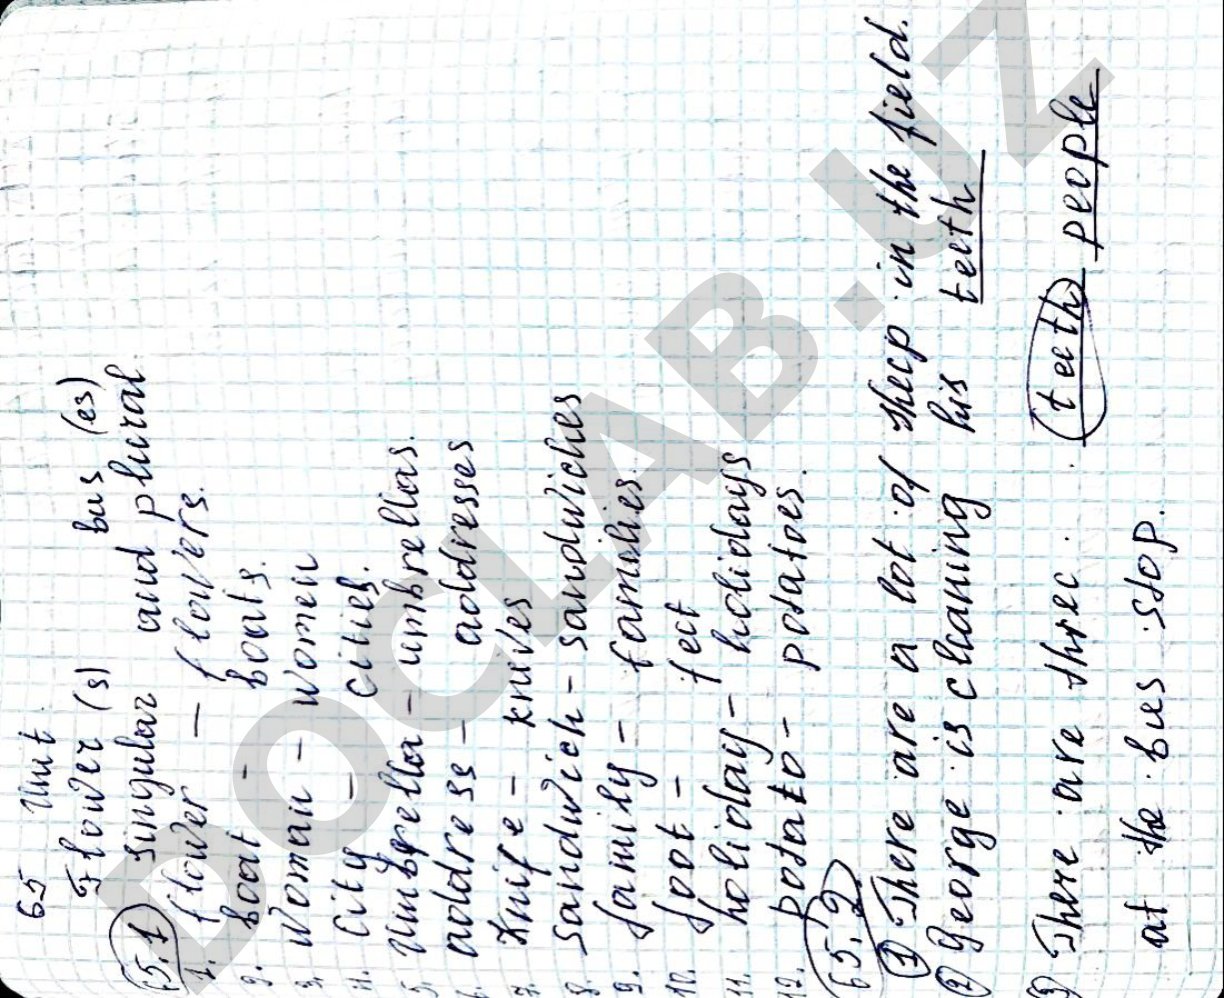 65 Unit
Flower (s) bus (es)
65.1 singular and plural
1. flower – flowers.
2. boat – boats.
3. woman – women
4. city – cities.
5. umbrella – umbrellas.
6. address – addresses
7. Knife – knives
8. sandwich – sandwiches
9. family – families.
10. foot – feet
11. holiday – holidays
12. potato – potatoes.
65.2
1 There are a lot of sheep in the field.
2 George is cleaning his teeth
3 There are three . (teeth) people
at the bus stop.
DOCLAB.UZ